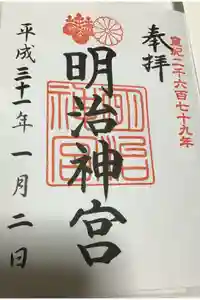 皇紀二千六百七十九年
奉拝
明治神宮
平成三十一年一月二日
明治神宮